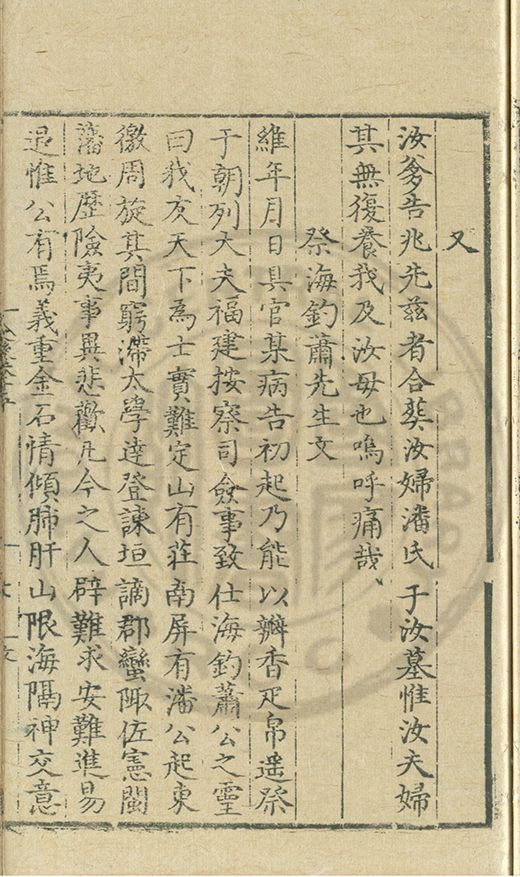 又
汝爹告兆先兹者合葬汝婦潘氏于汝墓惟汝夫婦
其無復養我及汝母也嗚呼痛哉
祭海釣蕭先生文
維年月日具官某病告初起乃能以瓣香疋帛遥祭
于朝列大夫福建按察司僉事致仕海釣蕭公之霊
曰我友天下為士實難定山有莊南屏有潘公起東
徼周旋其間窮滯太學達登諫垣謫郡蠻陬佐憲閩
藩地歷險夷事異悲歡凡今之人辟難求安難進易
退惟公有焉義重金石情傾肺肝山限海隔神交意